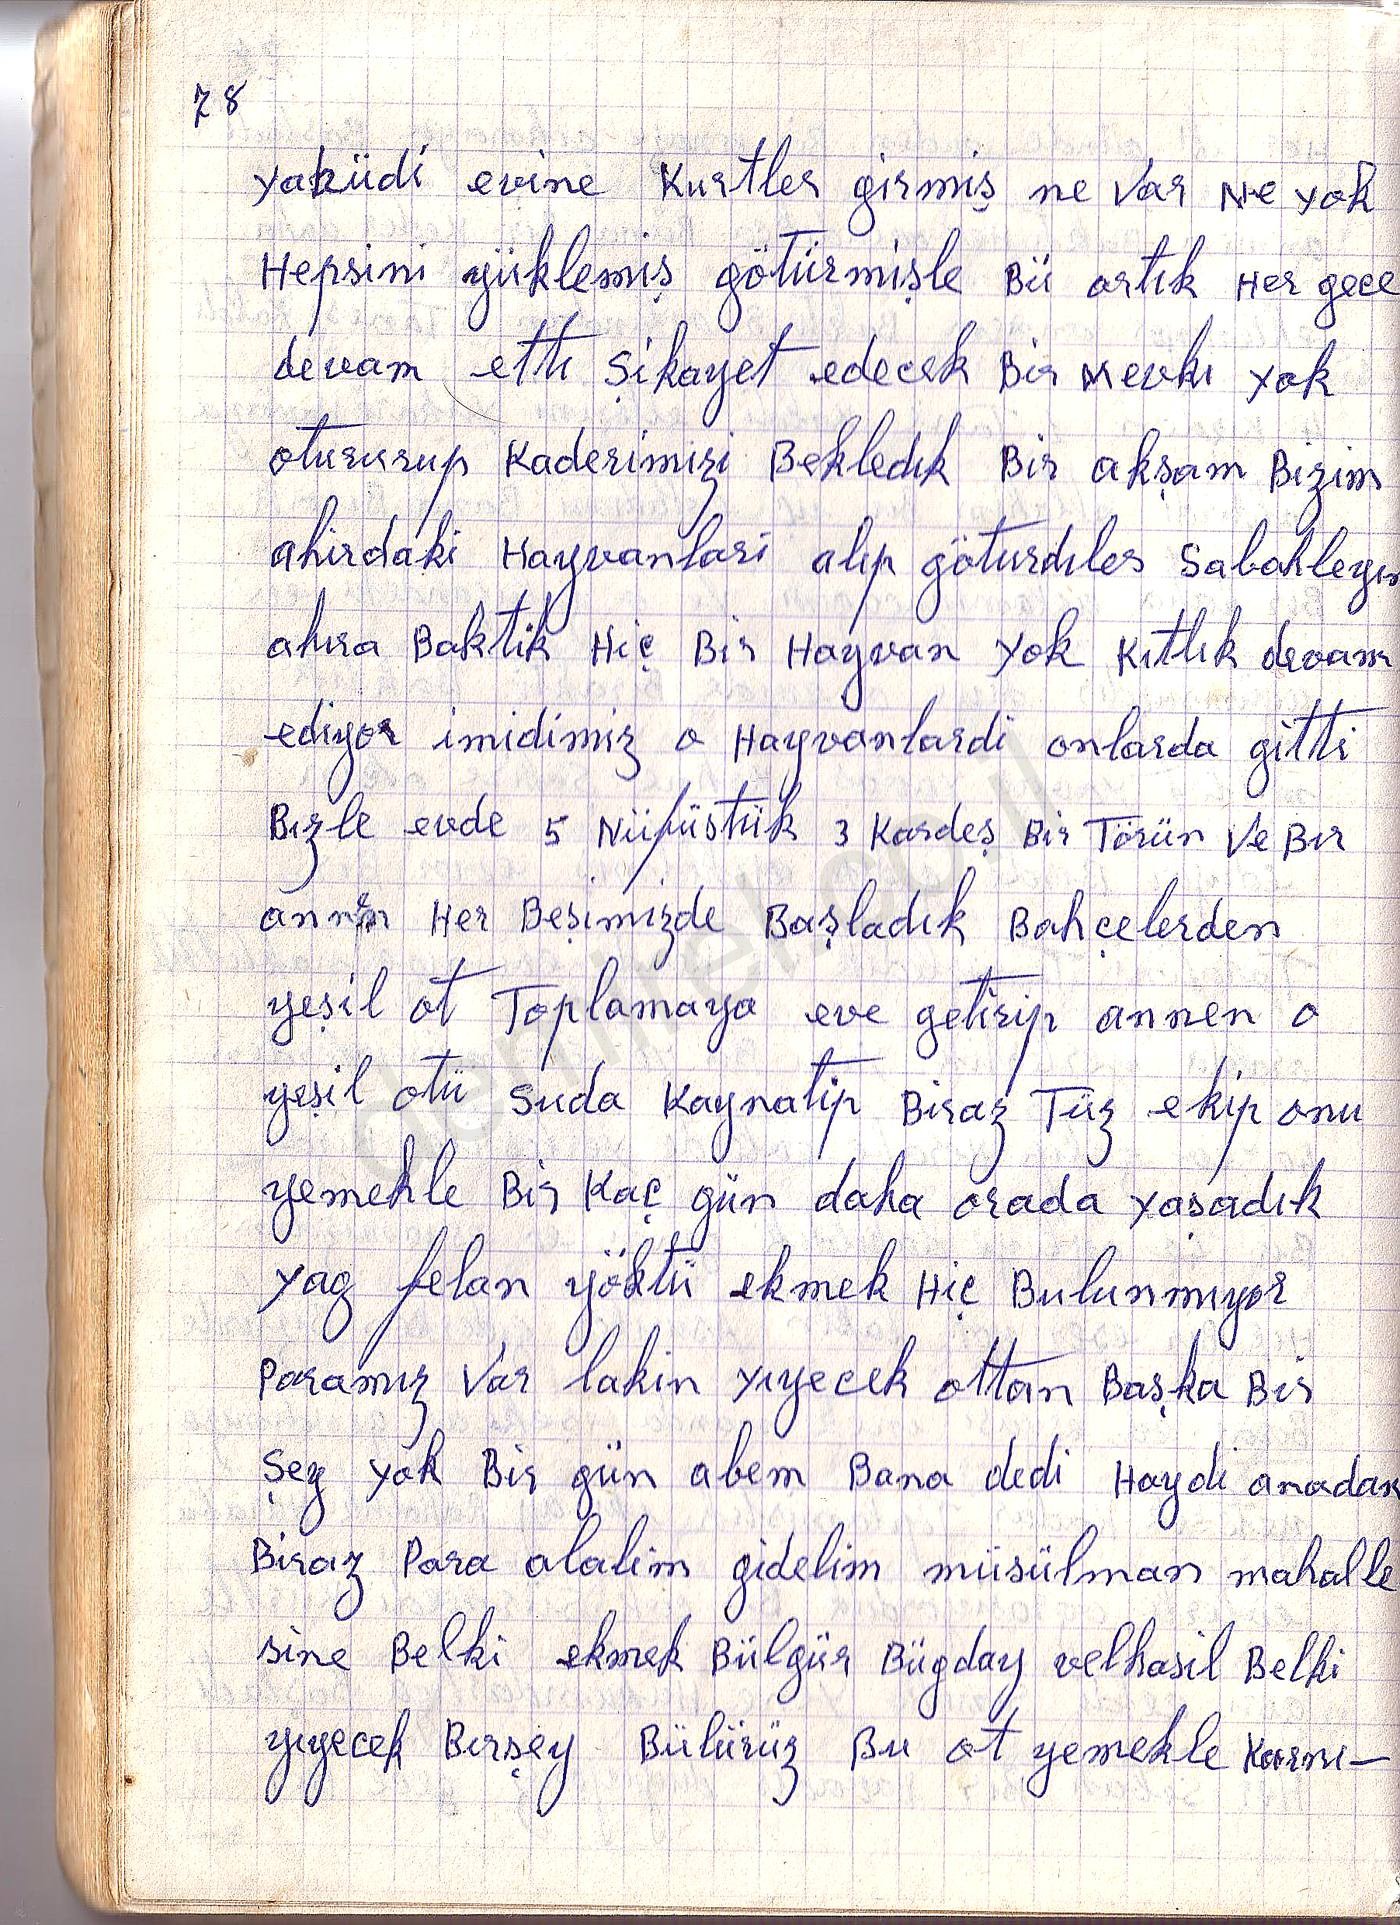 78
yaküdi evine Kurtler girmiş ne Var Ne yok
Hepsini yüklemiş götürmişle Bü artık Her gece
devam ettı Şikayet edecek Bir Mevkı yok
oturırup Kaderimizi Bekledık Bir akşam Bizim
ahirdaki Hayvanlari alıp göturdıler Sabahleyın
ahıra Baktik Hiç Bir Hayvan yok Kıtlık devam
ediyor imidimiz o Hayvanlardi onlarda gitti
Bızle evde 5 Nüfüstük 3 Kardeş Bir Törün Ve Bır
annen Her Beşimizde Başladık Bahçelerden
yeşil ot Toplamaya eve getirip annen o
yeşil otü Suda Kaynatip Biraz Tüz ekip onu
yemekle Bir Kaç gün daha orada yaşadık
yag felan yöktü ekmek Hiç Bulunmıyor
Paramız Var lakin yıyecek ottan Başka Bir
Şey yok Bir gün abem Bana dedi Haydi anadan
Biraz Para alalim gidelim müsülman mahalle
sine Belki ekmek Bülgür Bügday velhasil Belki
yıyecek Bırşey Bülürüz Bu ot yemekle Karnı-
demirel.co.il